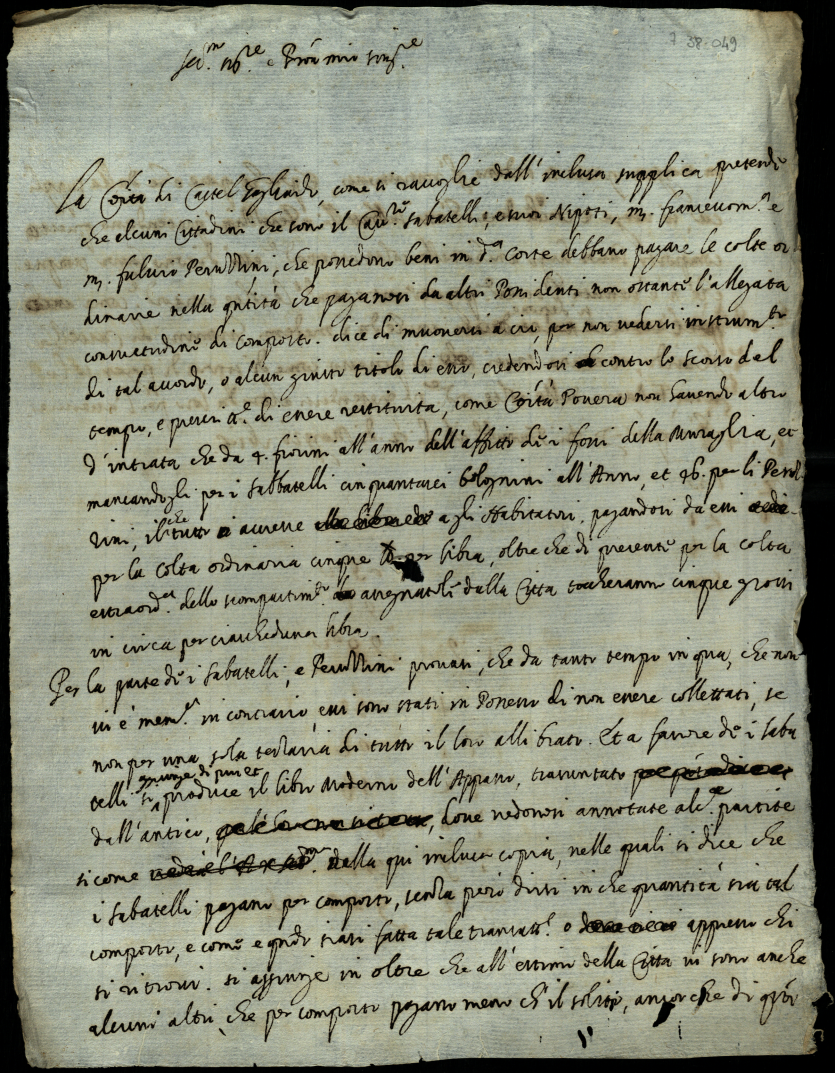 7 38-049
Ser.mo sig.re e Pron mio sing.re
La Cōītà di Castel Gagliardo, come si raccoglie dall' inclusa supplica pretende
che alcuni Cittadini che sono il Cav.re Sabatelli, e suoi Nipoti, m. franc e
m. fulvio Peruzzini, che possedono beni in d.a Corte debbano pagare le colte or
dinarie nella qñtità che paganosi da altri Possidenti non ostante l'allegata
consuetudine di composto. dice di muoversi a ciò, per non vedersi instrum.to
di tal accordo, o alcun giusto titolo di esso, credendosi contro lo scorso dal
tempo, e di essere restituita, come Cōītà Povera non havendo altro
d'intrata che da 4. fiorini all'anno dell'affitto de i fossi della Muraglia, et
mancandogli per i Sabbatelli cinquantasei bolognini all'Anno, et 26. per li Peruz
zini, il che tutto accresce agli Habitatori, pagandosi da essi
per la colta ordinaria cinque per libra, oltre che di presente per la colta
estraord.a dello scompartim.to assegnatole dalla Città toccheranno cinque grossi
in circa per ciascheduna libra.
Per la parte de i Sabatelli, e Peruzzini provasi, che da tanto tempo in qua, che non
vi è mem.a in contrario, essi sono stati in Possesso di non essere collettati, se
non per una sola terzaria di tutto il loro allibrato. Et a favore de i Saba
telli si produce il libro Moderno dell'Appasso, trasuntato
dall'antico, dove vedonosi annotate alc.e partite
sicome della qui inclusa copia, nelle quali si dice che
i Sabatelli pagano per composto, senza però dirsi in che quantità sia tal
composto, e come e qñdo siasi fatta tale transatt.e o appresso chi
si ritrovi. si aggiunge in oltre che all'estimo della Città vi sono anche
alcuni altri, che per composto pagano meno ch'il solito, ancor che di